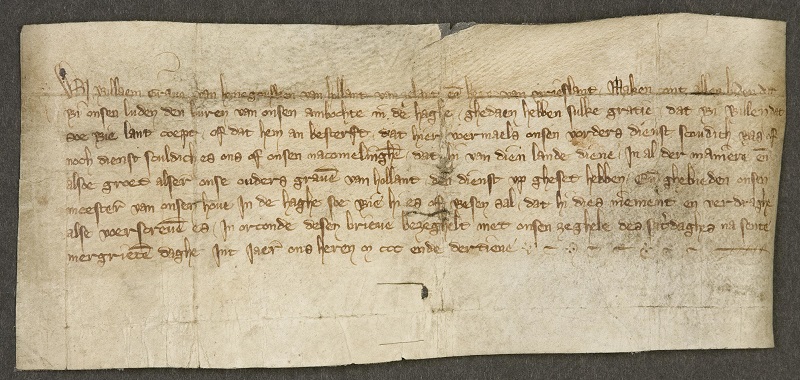 Wi willem Grave van henegouwen van hollant van zelant en̄ here van vrieslant Maken cont allen luden dat
wi onsen luden den buren van onsen ambochte in d' haghe ghedaen hebben sulke gratie dat wi willen dat
soe wie lant coept of dat hem an besterft dat hier voermaels onsen vorders dienst sculdich was of
noch dienst sculdich es ons of onsen nacomelinghē dat hi van dien lande diene in al der maniere en̄
alsoe groet alser onse ouders gravē van hollant den dienst up gheset hebben En̄ ghebieden onsen
meester van onser hove in de haghe soe wie hi es of wesen sal dat hi dies niement en verdraghe
alse voerscrevē es in orconde desen brieve bezeghelt met onsen zeghele des sat'daghes na sente
mergrietē daghe int jaer ons heren m ccc ende dertiene